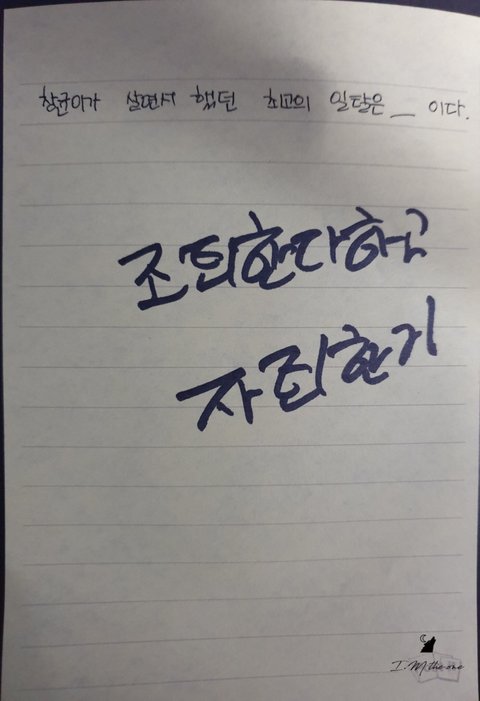 창균이가 살면서 했던 최고의 일탈은 __ 이다.
조퇴한다하고
자퇴하기
I.M the one